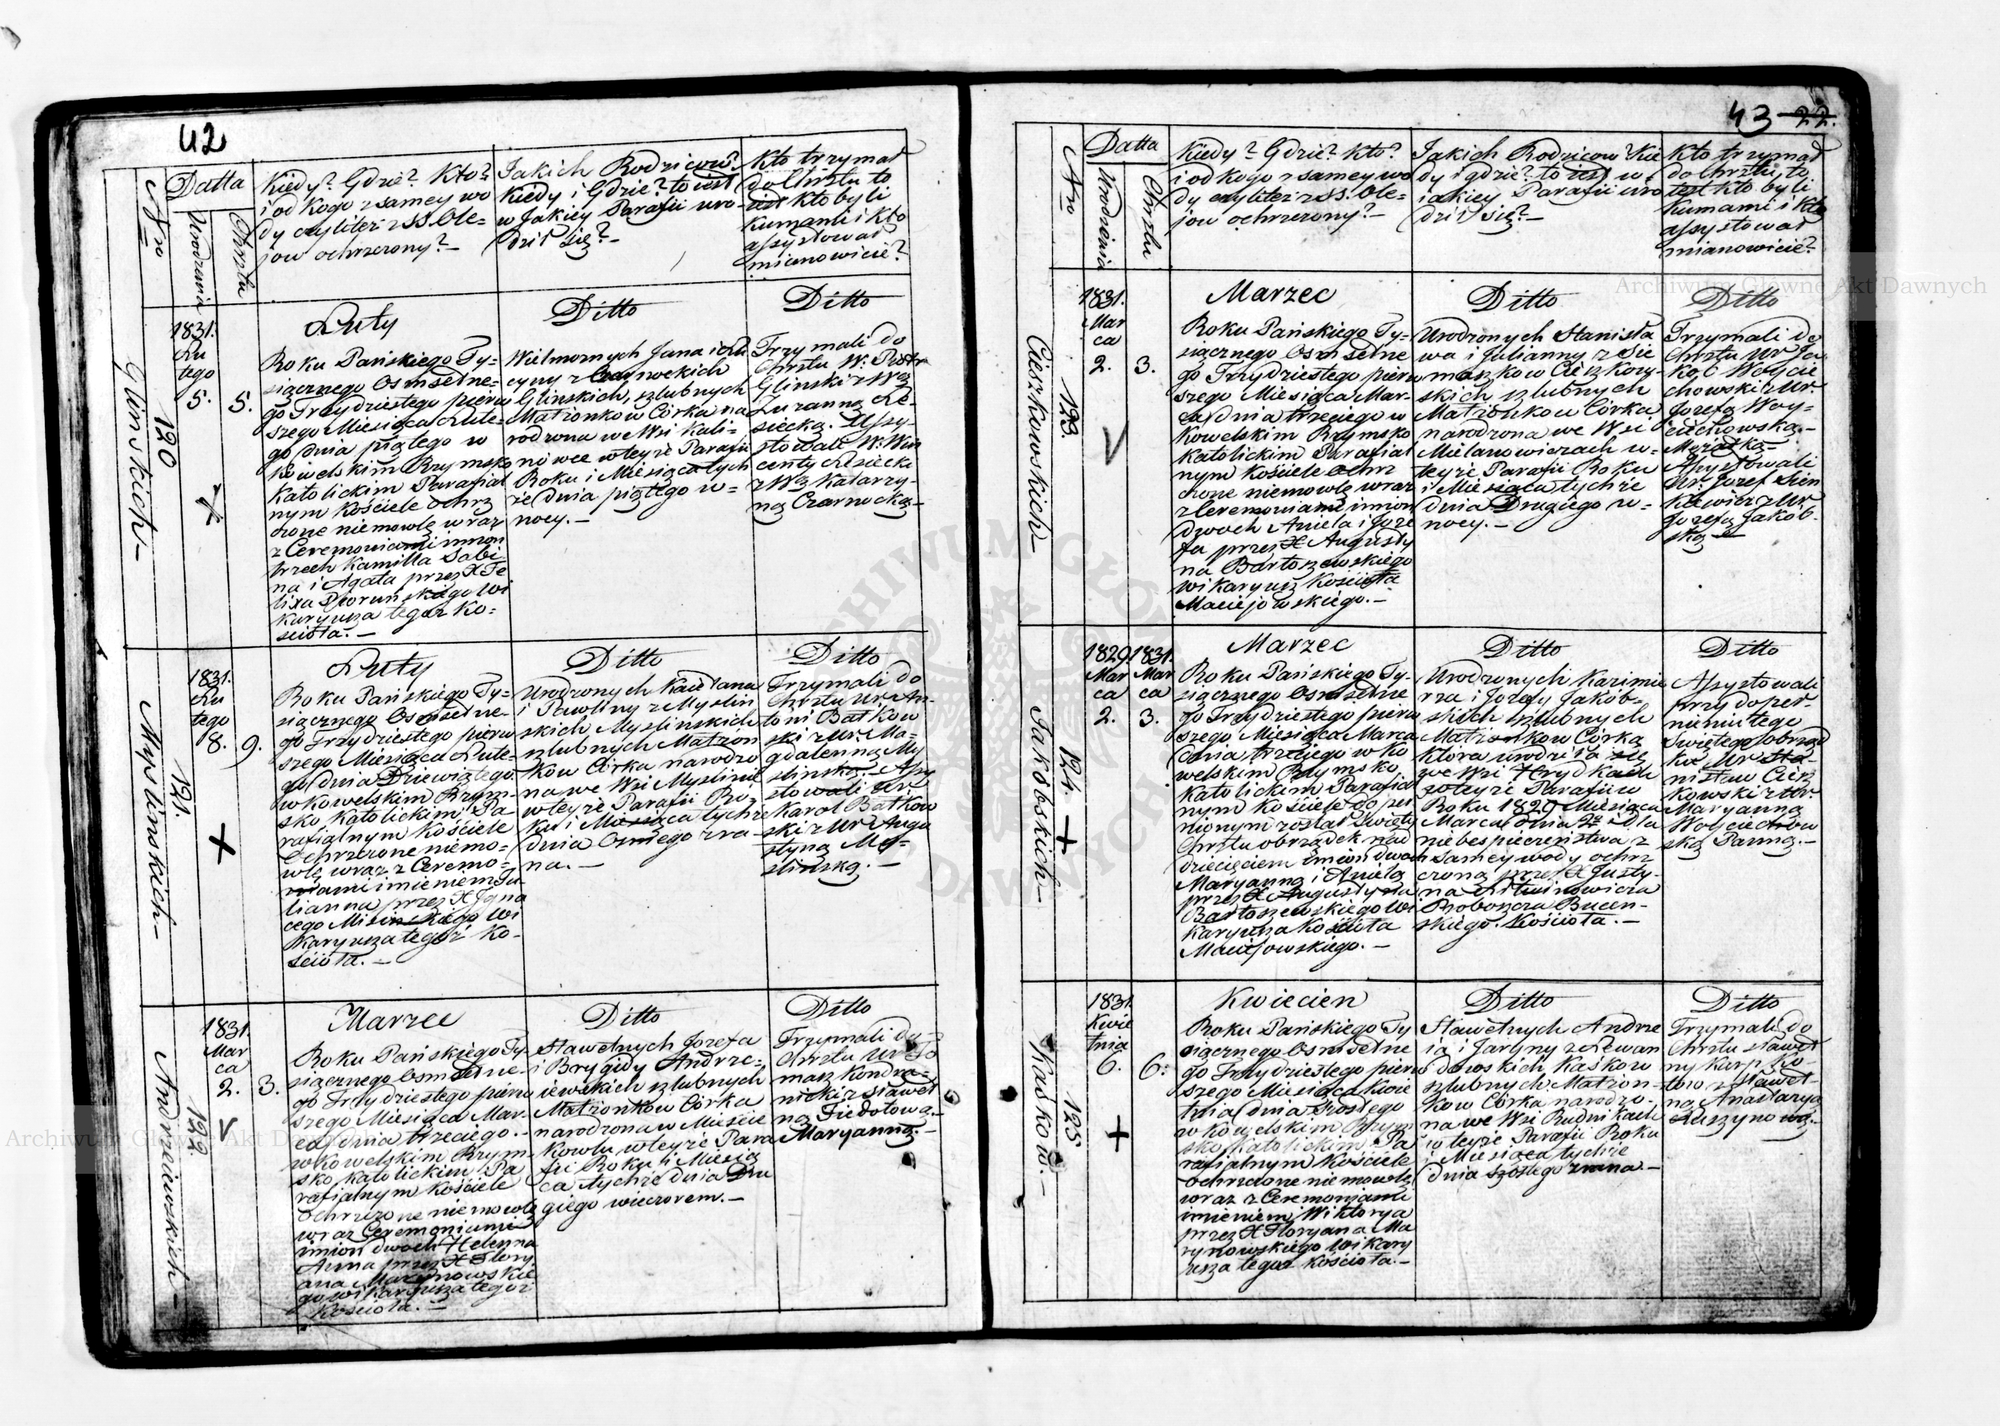 42
Nro
Datta
Urodzenia
Chrztu
Kiedy? Gdzie? Kto?
i od kogo z samey wo
dy czyliteż z SS. Ole-
jow ochrzczony? –
Jakich Rodziców?
Kiedy i Gdzie? to iest
w Jakiey Parafii uro-
dził się? –
Kto trzymał
do Chrztu to
iest kto byli
kumami i kto
assystował
mianowicie?
Glinskich –
120
1831.
Lu
tego
5.
5.
Luty
Roku Pańskiego Ty-
siącznego Osmsetne-
go Trzydziestego pierw
szego Miesiąca Lute-
go dnia piątego w
Kowelskim Rzymsko
Katolickim Parafial
nym Kościele ochrz
czone niemowlę wraz
z Ceremoniami imion
trzech Kamilla Sabi-
na i Agata przez X Fe
lixa
Wi
karyusza tegoż Ko-
ścioła. –
Ditto
Wielmożnych Jana i Lu
cyny z
Glinskich, szlubnych
Małżonkow Córka na
rodzona we Wsi Kali-
nowce w teyże Parafii
Roku i Miesiąca tych
że dnia piątego w-
nocy. –
Ditto
Trzymali do
Chrztu W: Piotr
Glinski z Wą
Zuzanną Le-
siecką. Assy-
stowali W: Win
centy Lesiecki
z Wą Katarzy-
ną Czarnocką –
Myslinskich –
121.
1831.
Lu
tego
8.
9.
Luty
Roku Pańskiego Ty-
siącznego Osmsetne-
go Trzydziestego pierw
szego Miesiąca Lute-
go dnia Dziewiątego
w Kowelskim Rzym-
sko Katolickim Pa-
rafialnym Kościele
Ochrzczone niemo-
wlę wraz z Ceremo-
niami imieniem Ju-
lianna przez X Igna
cego Wi
karyusza tegoż Ko-
ścioła. –
Ditto
Urodzonych Kaietana
i Pawliny z Myslin
skich Myslinskich
szlubnych Małżon
kow Córka narodzo
na we Wsi Myslinie
w teyże Parafii Ro-
ku i Miesiąca tychże
dnia Osmego zra-
na. –
Ditto
Trzymali do
Chrztu Ur. An-
toni Batkow
ski z Ur. Ma-
gdalenną My
slinską. – Assy
stowali Ur.
Karol Batkow
ski z Ur. Augu
styną My-
slinską. –
Andrzeiewskich –
122.
1831.
Mar
ca
2.
3.
Marzec
Roku Pańskiego Ty-
siącznego Osmsetne-
go Trzydziestego pierw
szego Miesiąca Mar-
ca dnia trzeciego. –
w Kowelskim Rzym-
sko Katolickim Pa
rafialnym Kościele
Ochrzczone niemowlę
wraz Ceremoniami
imion dwoch Helenna
Anna przez X Flory
ana Marynowskie
go wikaryusza tegoż
Kościoła. –
Ditto
Sławetnych Jozefa
i Brygidy Andrze-
iewskich szlubnych
Małżonkow Córka
narodzona w Mieście
Kowlu w teyże Para
fii Roku i Miesią
ca tychże dnia Dru
giego wieczorem. –
Ditto
Trzymali do
Chrztu Ur. To
masz Kondra-
nicki z Sławet
ną Fiedotową
Maryanną. –
43 22.
Nro
Datta
Urodzenia
Chrztu
Kiedy? Gdzie? Kto?
i od kogo z samey wo
dy czyliteż z SS. Ole-
jow ochrzczony? –
Jakich Rodzicow? Kie
dy i gdzie? to iest w
iakiey Parafii uro
dził się? –
Kto trzymał
do Chrztu, to
iest kto byli
Kumami i kto
assystował
mianowicie?
Cierzkowskich –
123.
1831.
Mar
ca
2.
3.
Marzec
Roku Pańskiego Ty-
siącznego Osmsetne
go Trzydziestego pierw
szego Miesiąca Mar-
ca dnia trzeciego w
Kowelskim Rzymsko
Katolickim Parafial
nym Kościele Ochrz
czone niemowlę wraz
z Ceremoniami imion
dwoch Aniela i Joze
fa przez X Augusty
na Bartoszewskiego
wikaryusz Kościoła
Maciejowskiego. –
Ditto
Urodzonych Stanisła
wa i Julianny z Sie
maszkow Cierzkow-
skich szlubnych
Małżonkow Córka
narodzona we Wsi
Milanowiczach w-
teyże Parafii Roku
i Miesiąca tychże
dnia Drugiego w-
nocy. –
Ditto
Trzymali do
Chrztu Ur. Ja
kob Woycie
chowski z Ur.
Jozefą Woy-
ciechowską. –
Assystowali
Ur. Jozef Sien
kiewicz z Ur.
Jozefą Jakob-
ską –
Jakobskich –
124.
1829.
Mar
ca
2.
1831.
Mar
ca
3.
Marzec
Roku Pańskiego Ty-
siącznego Osmsetne
go Trzydziestego pierw
szego Miesiąca Marca
dnia trzeciego w Ko
welskim Rzymsko
Katolickim Parafial
nym Kościele dopeł
nionym został Święty
Chrztu obrządek nad
dziecięciem imion dwoch
Maryanna i Aniela
przez X Augustyna
Bartoszewskiego Wi
karyusza Kościoła
Maciejowskiego. –
Ditto
Urodzonych Kazimie
rza i Jozefy Jakob-
skich szlubnych
Małżonkow Córka
która urodziła się
we Wsi Hrydkach
w teyże Parafii w
Roku 1829 Miesiąca
Marca dnia 2go i dla
niebespieczeństwa z
samey wody ochrz
czona przez X Justy-
na Litwinowicza
Proboszcza Bucen-
skiego Kościoła. –
Ditto
Assystowali
przy dopeł-
nieniu tego
Świętego obrząd
ku Ur. Sta-
nisław Cierz
kowski z Ur.
Maryanną
Woyciechow
ską Panną. –
Kaskow. –
125.
1831.
Kwie
tnia
6.
6.
Kwiecień
Roku Pańskiego Ty
siącznego Osmsetne
go Trzydziestego pierw
szego Miesiąca Kwie
tnia dnia szostego
w Kowelskim Rzym
sko Katolickim Pa
rafialnym Kościele
Ochrzczone niemowlę
wraz z Ceremoniami
imieniem Wiktorya
przez X Floryana Ma
rynowskiego Wikary
usza tegoż Kościoła. –
Ditto
Sławetnych Andrze
ia i Jaryny z Lewan
dowskich Kaskow
szlubnych Małżon-
kow Córka narodzo-
na we Wsi Rudnikach
w teyże Parafii Roku
i Miesiąca tychże
dnia szostego zrana –
Ditto
Trzymali do
Chrztu sławet
ny Karp Ko-
tow z Sławet-
ną Anastazyą